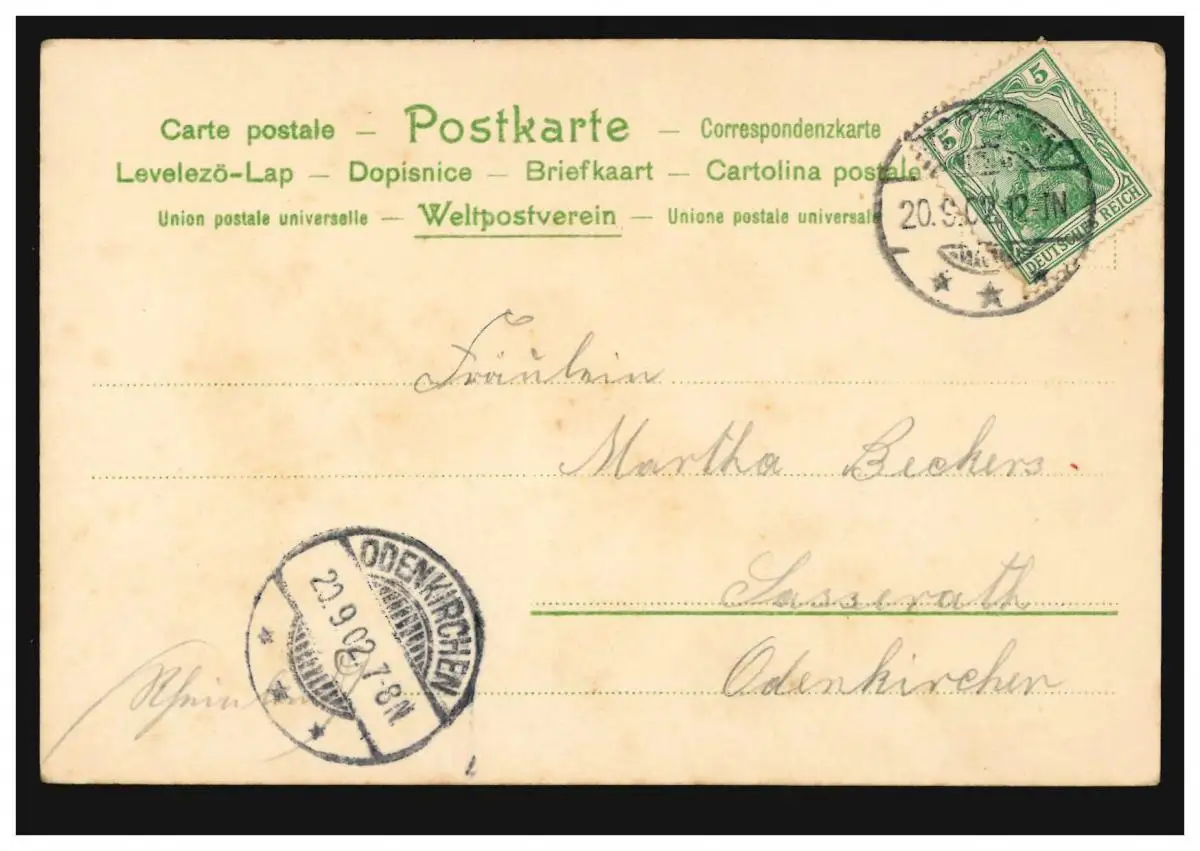 Carte postale – Postkarte – Correspondenzkarte
Levelezö-Lap – Dopisnice – Briefkaart – Cartolina postale
Union postale universelle – Weltpostverein – Unione postale universale
5 5
DEUTSCHES REICH
20.9.02.12-1N
Fräulein
Martha Beckers
Sasserath
Odenkirchen
ODENKIRCHEN
20.9.02.7-8N.